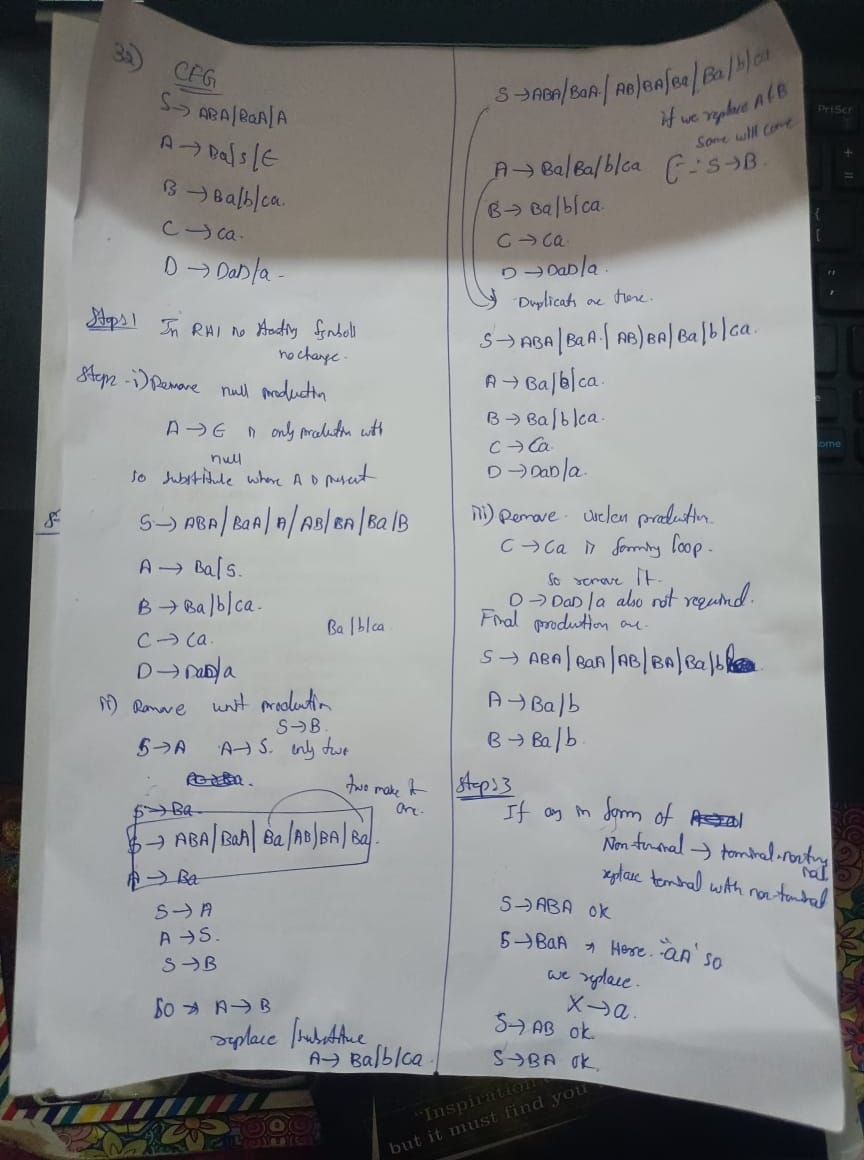 32)
CFG
S→ ABA/BaA/A
A → Ba/S/ϵ
B → Ba/b/ca.
C → ca.
D → DaD/a -
Step:1 In RHS no starting symbol
no change.
Step2 - i) Remove null production
A → ϵ is only production with
null
so substitute where A is present
S → ABA/BaA/A/AB/BA/Ba/B
A → Ba/S.
B → Ba/b/ca.
C → ca.
Ba/b/ca
D → DaD/a
ii) Remove unit production
S→B.
S→A A→S. only two
two make it
one.
S→Ba
S → ABA/BaA/Ba/AB/BA/Ba.
A → Ba
S→A
A→S.
S→B
So → A→B
replace /substitue
A→ Ba/b/ca.
S→ABA/BaA/AB/BA/Ba/Ba/b/ca
if we replace A &B
same will come
A → Ba/Ba/b/ca (∵ S→B.
B → Ba/b/ca.
C → Ca.
D → DaD/a.
Duplicats are there.
S→ABA/BaA/AB/BA/Ba/b/ca.
A → Ba/b/ca.
B → Ba/b/ca.
C → Ca.
D → DaD/a.
iii) Remove useless production.
C → Ca is forming loop.
So remove it.
D → DaD/a also not required.
Final production are.
S → ABA/BaA/AB/BA/Ba/b
A → Ba/b
B → Ba/b.
Step:3
If any in form of
Non terminal → terminal.
replace terminal with non-terminal
S→ABA ok
S→BaA → Here. 'aA' so
we replace.
X→a.
S→AB ok.
S→BA ok.
PrtScr
+
=
{
[
"
'
ome
"Inspiration
but it must find you